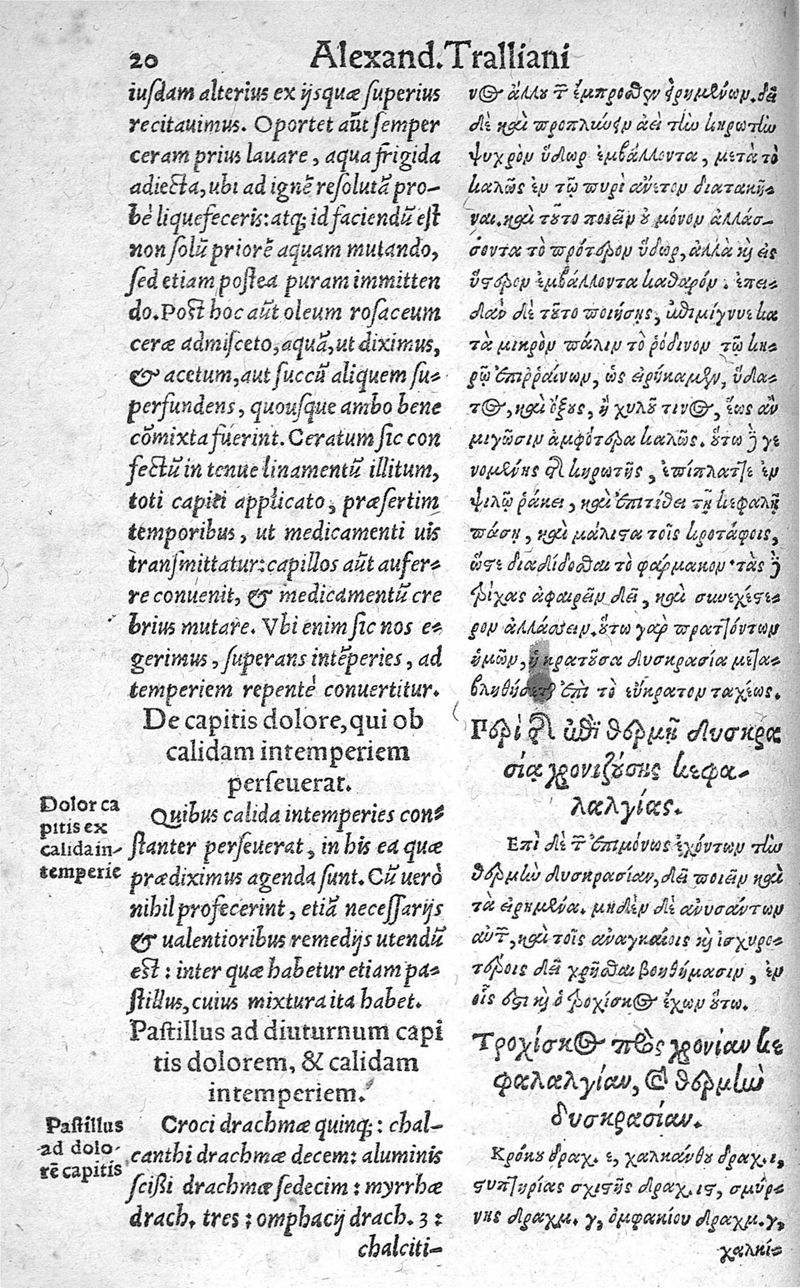 20 Alexand. Tralliani
iusdam alterius ex ijsquæ superius
recitauimus. Oportet aũt semper
ceram prius lauare, aqua frigida
adiecta, ubi ad ignẽ resolutã pro-
bè liquefeceris: atq; id faciendũ est
non solũ priorẽ aquam mutando,
sed etiam postea puram immitten
do. Post hoc aũt oleum rosaceum
ceræ admisceto, aquã, ut diximus,
& acetum, aut succũ aliquem su-
perfundens, quousque ambo bene
cõmixta fuerint. Ceratum sic con
fectũ in tenue linamentũ illitum,
toti capiti applicato, præsertim
temporibus, ut medicamenti uis
transmittatur: capillos aũt aufer-
re conuenit, & medicamentũ cre
brius mutare. Vbi enim sic nos e-
gerimus, superans intẽperies, ad
temperiem repentè conuertitur.
De capitis dolore, qui ob
calidam intemperiem
perseuerat.
Dolor ca
pitis ex
calida in-
temperie
Quibus calida intemperies con-
stanter perseuerat, in his ea quæ
prædiximus agenda sunt. Cũ uerò
nihil profecerint, etiã necessarijs
& ualentioribus remedijs utendũ
est: inter quæ habetur etiam pa-
stillus, cuius mixtura ita habet.
Pastillus ad diuturnum capi
tis dolorem, & calidam
intemperiem.
Pastillus
ad dolo-
rẽ capitis
Croci drachmæ quinq;: chal-
canthi drachmæ decem: aluminis
scißi drachmæ sedecim: myrrhæ
drach. tres: omphacij drach. 3:
chalciti-
νος ἄλλου τῶν ἔμπροσθεν εἰρημένων. δεῖ
δὲ καὶ προπλύνειν ἀεὶ τὴν κηρωτὴν
ψυχρὸν ὕδωρ ἐμβάλλοντα, μετὰ τὸ
καλῶς ἐν τῷ πυρὶ αὐτὸν διατακῆ-
ναι. καὶ τοῦτο ποιεῖν οὐ μόνον ἀλλάσ-
σοντα τὸ πρότερον ὕδωρ, ἀλλὰ καὶ εἰς
ὕστερον ἐμβάλλοντα καθαρόν. ἐπει-
δὰν δὲ τοῦτο ποιήσῃς, ἐπιμίγνυε κα
τὰ μικρὸν πάλιν τὸ ῥόδινον τῷ κη-
ρῷ ἐπιρραίνων, ὡς εἰρήκαμεν, ὕδα-
τος, καὶ ὄξους, ἢ χυλοῦ τινος, ἕως ἂν
μιγῶσιν ἀμφότερα καλῶς. οὕτω δὲ γε
νομένης τῆς κηρωτῆς, ἐπίπλαττε ἐν
ψιλῷ ῥάκει, καὶ ἐπιτίθει τῇ κεφαλῇ
πάσῃ, καὶ μάλιστα τοῖς κροτάφοις,
ὥστε διαδίδοσθαι τὸ φάρμακον· τὰς δὲ
τρίχας ἀφαιρεῖν δεῖ, καὶ συνεχέστε-
ρον ἀλλάσσειν. οὕτω γὰρ πραττόντων
ἡμῶν, ἡ κρατοῦσα δυσκρασία μετα-
βληθήσεται ἐπὶ τὸ εὔκρατον ταχέως.
Περὶ τῆς ἐπὶ θερμῇ δυσκρα
σίᾳ χρονιζούσης κεφα-
λαλγίας.
Επὶ δὲ τῶν ἐπιμόνως ἐχόντων τὴν
θερμὴν δυσκρασίαν, δεῖ ποιεῖν καὶ
τὰ εἰρημένα. μηδὲν δὲ ἀνυσάντων
αὐτῶν, καὶ τοῖς ἀναγκαίοις καὶ ἰσχυρο-
τέροις δεῖ χρῆσθαι βοηθήμασιν, ἐν
οἷς ἐστι καὶ ὁ τροχίσκος ἔχων οὕτω.
Τροχίσκος πρὸς χρονίαν κε
φαλαλγίαν, καὶ θερμὴν
δυσκρασίαν.
Κρόκου δραχ. ε, χαλκάνθου δραχ. ι,
στυπτηρίας σχιστῆς δραχ. ιϛ, σμύρ-
νης δραχμ. γ, ὀμφακίου δραχμ. γ,
χαλκί-